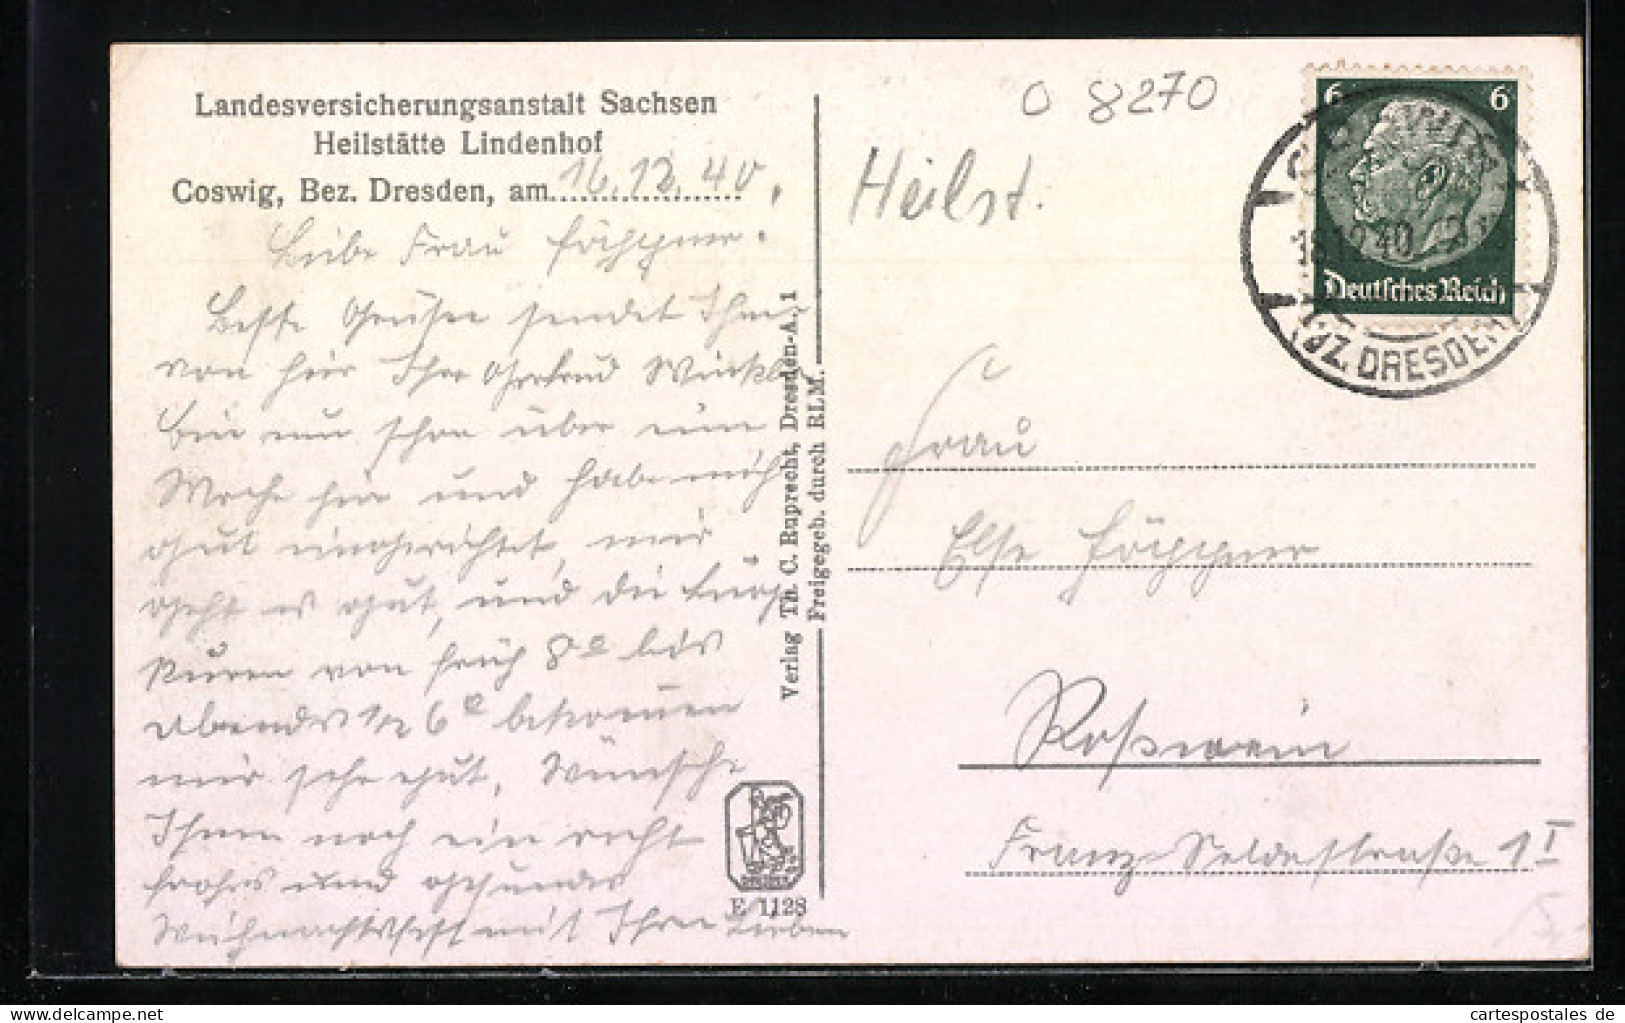 Landesversicherungsanstalt Sachsen
Heilstätte Lindenhof
Coswig, Bez. Dresden, am 16.12.40.
Liebe Frau Höppner.
Beste Grüße sendet Ihnen
von hier Ihre Gertrud Winkler
bin nun schon über eine
Woche hier und habe mich
gut eingerichtet, mir
geht es gut, und die
Kuren von früh 8° bis
Abends ½ 6° bekommen
mir sehr gut. Wünsche
Ihnen noch ein recht
frohes und gesundes
Weihnachtsfest mit Ihren Lieben
Verlag Th. C. Ruprecht, Dresden-A. 1
Freigegeb. durch RLM.
E 1128
O 8270
Heilst.
6 6
Deutsches Reich
COSWIG
.12.40
(BZ. DRESDEN)
Frau
Else Höppner
Roßwein
Franz-Seldestraße 1 I
cartespostales de
delcampe.net